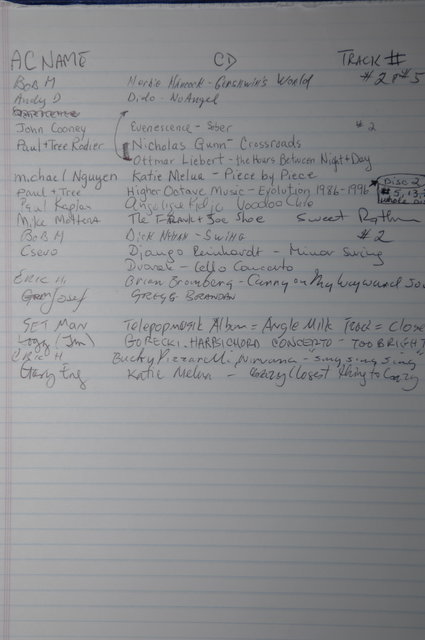 AC NAME CD TRACK #
BOB M Herbie Hancock - Gershwin's World #2 or #5
Andy D Dido - No Angel
John Cooney Evenescence - Sober #2
Paul + Tree Rodier Nicholas Gunn - Crossroads
Ottmar Liebert - the Hours Between Night + Day
michael Nguyen Katie Melua - Piece by Piece
paul + Tree Higher Octave Music - Evolution 1986-1996 Disc 2 #5, 13,
Paul Kaplan Angelique Kidjo Voodoo Child whole
Mike The T-Frank + Joe Shoe Sweet Rythm
BOB M DICK - SWING #2
Django Reinhardt - Minor Swing
Dvorak - Cello Concerto
ERIC H. Brian Bromberg - Carry on My Wayward
Josef GREGG
SET MAN Telepopmusik Album = Angle Milk Trac = Close
(Jim) GORECKI. HARPSICHORD CONCERTO - TOO BRIGHT
ERIC H Bucky Pizzarelli, Nirvana - Sing sing sing
Gary Eng Katie Melua - Closest thing to Crazy